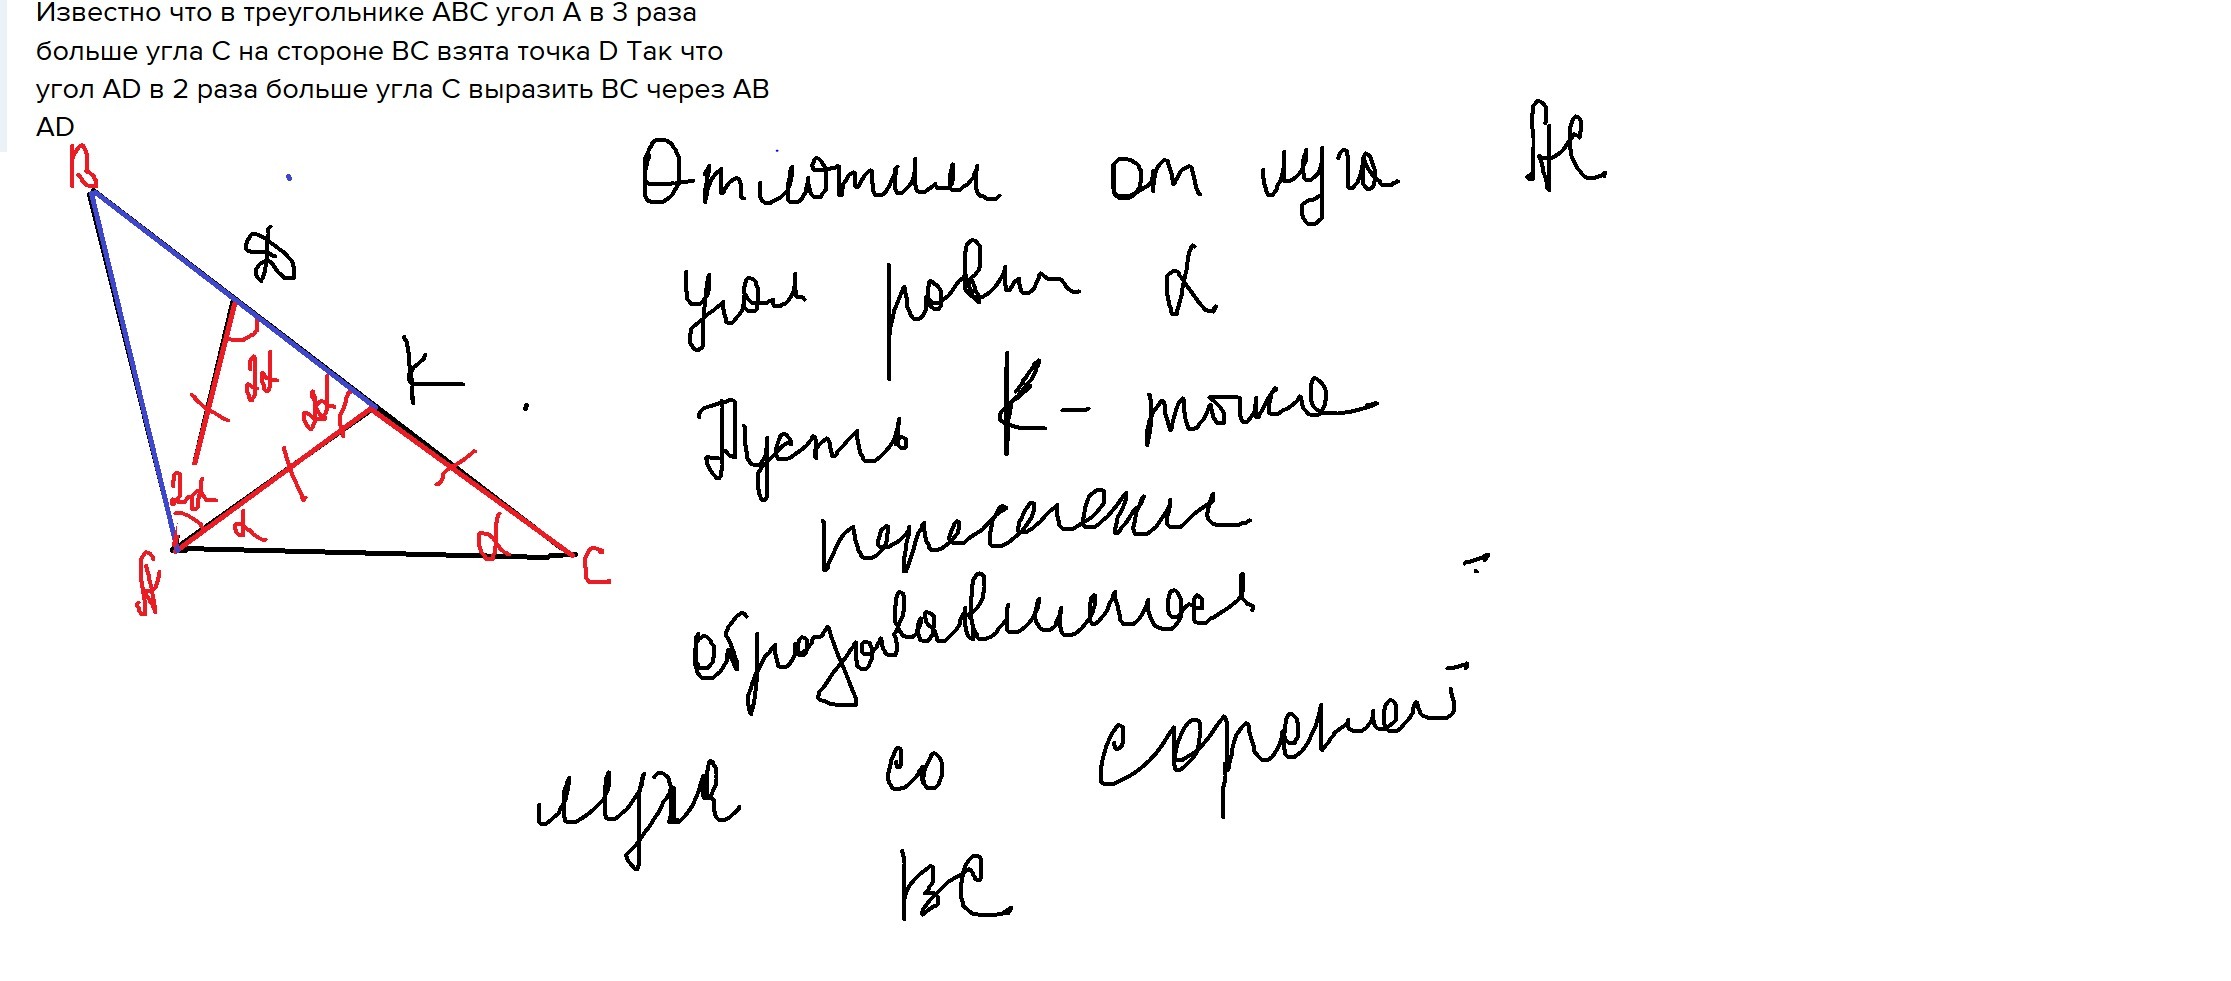 Известно что в треугольнике ABC угол A в 3 раза
больше угла C на стороне BC взята точка D Так что
угол AD в 2 раза больше угла C выразить BC через AB
AD
B
D
K
2α
2α
2α
α
α
A
C
Отложим от луча AC
угол равн α
Пусть K - точка
пересечени
образовавшегося
луча со
BC